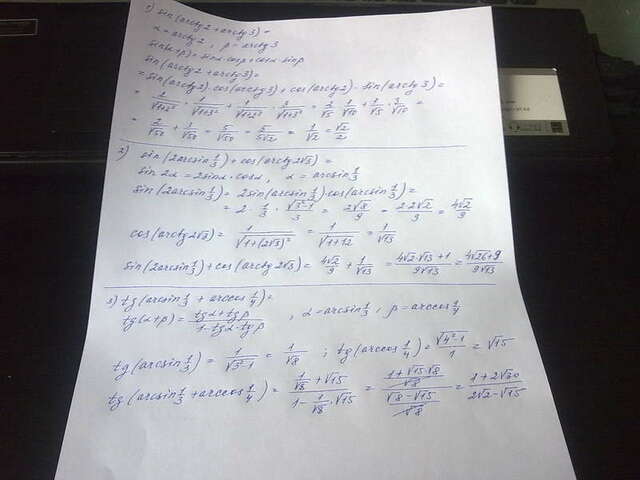 1) sin(arctg2+arctg3)=
α=arctg2, β=arctg3
sin(α+β)=sinα·cosβ+cosα·sinβ
sin(arctg2+arctg3)=
=sin(arctg2)·cos(arctg3)+cos(arctg2)·sin(arctg3)=
= 2/√5 · 1/√10 + 1/√5 · 3/√10 =
= 2/√50 + 3/√50 = 5/√50 = 5/5√2 = 1/√2 = √2/2
2) sin(2arcsin 1/3)+cos(arctg2√3)=
sin2α=2sinα·cosα, α=arcsin 1/3
sin(2arcsin 1/3)=2sin(arcsin 1/3)·cos(arcsin 1/3)=
=2· 1/3 · √(3²-1)/3 = 2√8/9 = 2·2√2/9 = 4√2/9
cos(arctg2√3)= 1/√(1+(2√3)²) = 1/√(1+12) = 1/√13
sin(2arcsin 1/3)+cos(arctg2√3)= 4√2/9 + 1/√13 = = (4√26+9)/9√13
3) tg(arcsin 1/3 + arccos 1/4)=
tg(α+β)= (tgα+tgβ)/(1-tgα·tgβ), α=arcsin 1/3, β=arccos 1/4
tg(arcsin 1/3)= 1/√(3²-1) = 1/√8 ; tg(arccos 1/4)= √(4²-1)/1 = √15
tg(arcsin 1/3 + arccos 1/4)= (1/√8 + √15)/(1- 1/√8 ·√15) = ((1+√15·√8)/√8)/((√8-√15)/√8) = (1+2√30)/(2√2-√15)